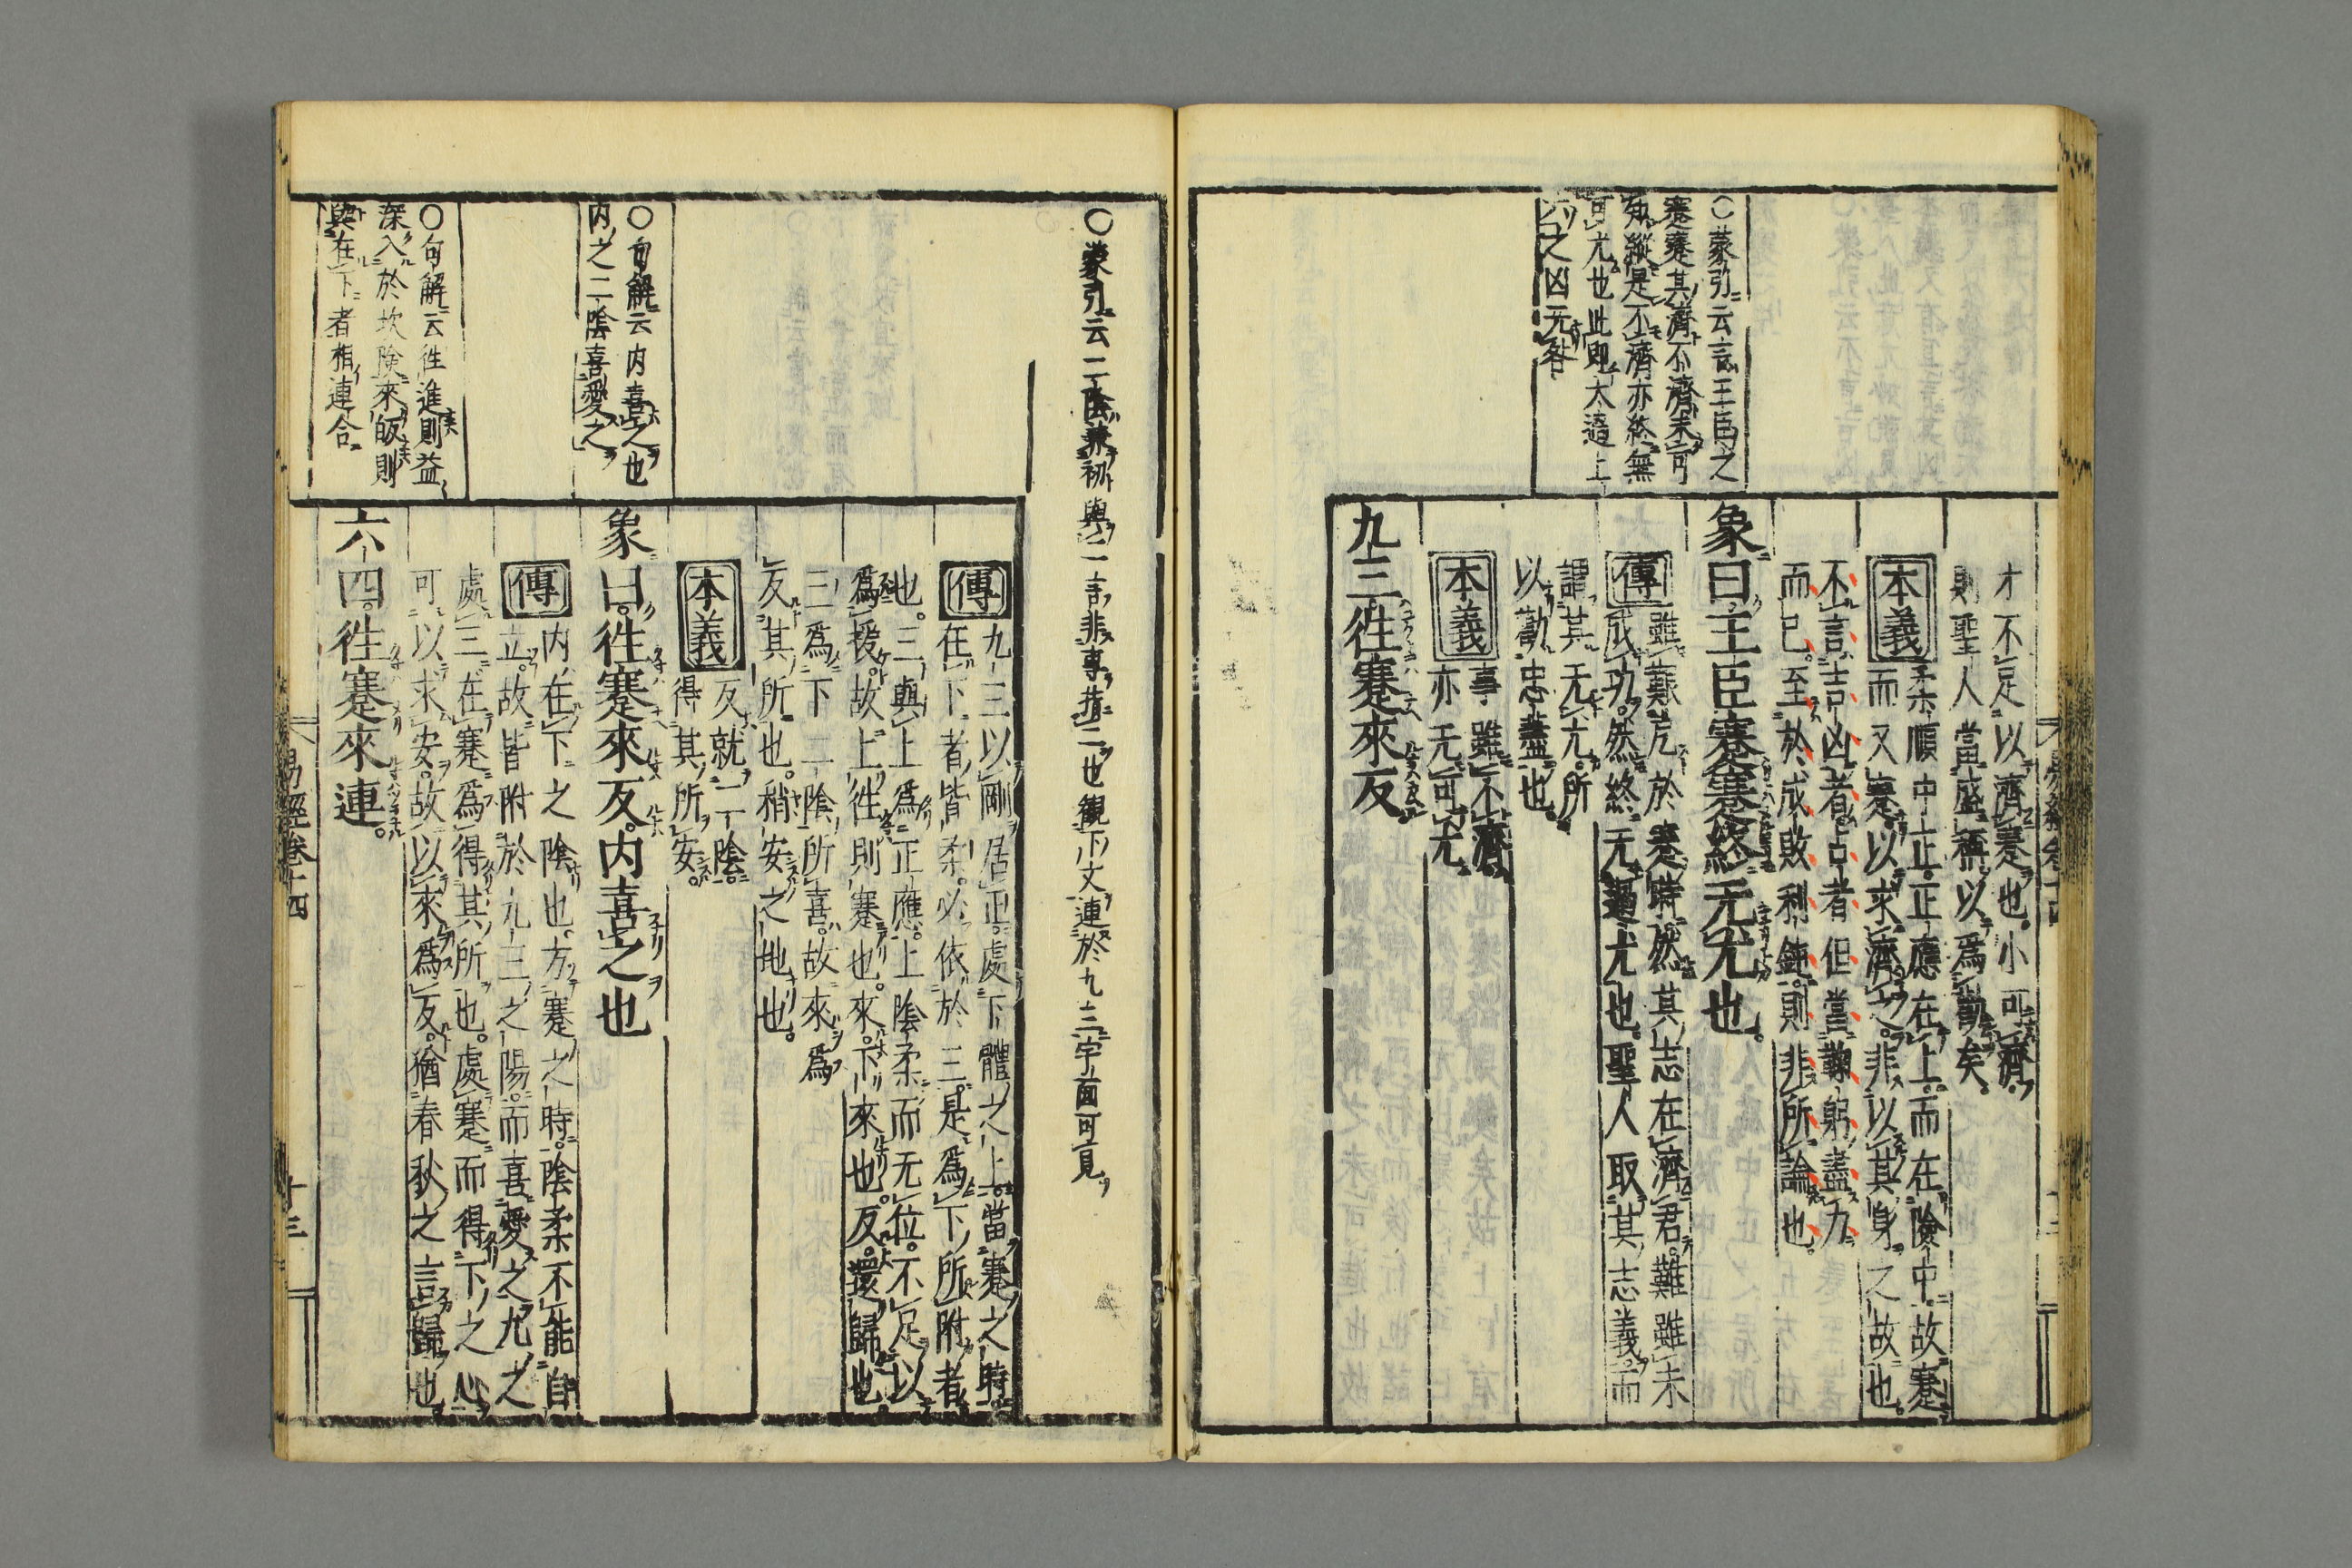 才不足以濟蹇也小可濟
則聖人當盛稱以爲勸矣
本義
柔順中正正應在上而在險中故蹇
而又蹇以求濟之非以其身之故也
不言吉凶者占者但當鞠躬盡力
而已至於成敗利鈍則非所論也
象曰王臣蹇蹇終无尤也
傳
雖艱厄於蹇時然其志在濟君難雖未
成功然終无過尤也聖人取其志義而
謂其无尤所
以勸忠藎也
本義
事雖不濟
亦无可尤
九三往蹇來反
〇蒙引云言王臣之
蹇蹇其濟不濟未可
知縱是不濟亦終無
可尤也此即大過上
六之凶无咎
〇蒙引云二陰兼初與二言非專指二也觀下文連於九三字面可見
傳
九三以剛居正處下體之上當蹇之時
在下者皆柔必依於三是爲下所附者
也三與上爲正應上陰柔而无位不足以
爲援故上往則蹇也來下來也反還歸也
三爲下二陰所喜故來爲
反其所也稍安之地也
本義
反就二陰
得其所安
象曰往蹇來反内喜之也
傳
内在下之陰也方蹇之時陰柔不能自
立故皆附於九三之陽而喜愛之九之
處三在蹇爲得其所也處蹇而得下之心
可以求安故以來爲反猶春秋之言歸也
六四往蹇來連
〇句解云内喜之也
内之二陰喜愛之
〇句解云往進則益
深入於坎險來皈則
與在下者相連合
易經卷十四
十三